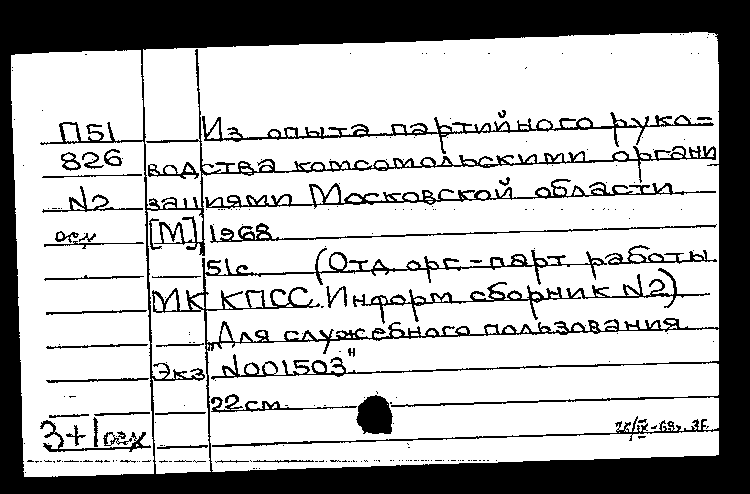 П51 Из опыта партийного руко=
826 водства комсомольскими органи
N2 зациями Московской области.
[М], 1968.
51с. (Отд. орг.=парт. работы
МК КПСС. Информ сборник N2)
„Для служебного пользования
Экз N001503".
22 см.
3+1